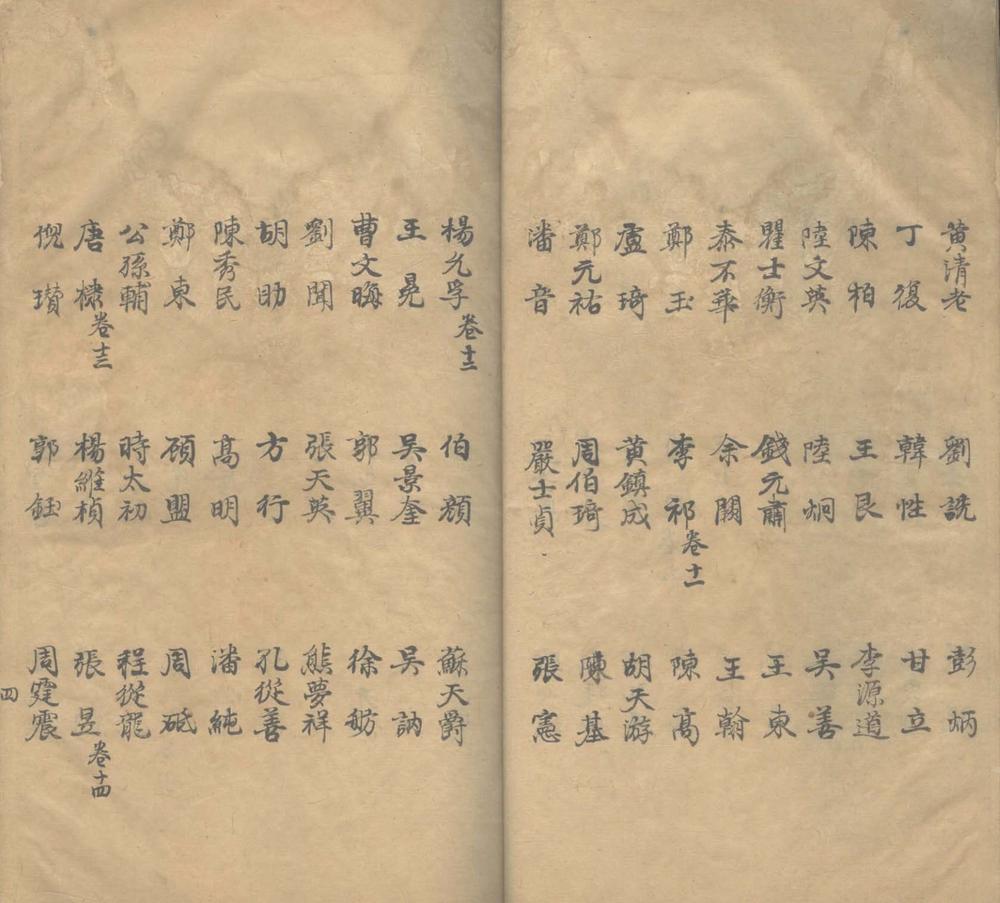 黃清老 劉詵 彭炳
丁復 韓性 甘立
陳柏 王艮 李源道
陸文英 陸炯 吳善
瞿士衡 錢元肅 王東
泰不華 余闕 王翰
鄭玉 李祁卷十一 陳高
盧琦 黃鎮成 胡天游
鄭元祐 周伯琦 陳基
潘音 嚴士貞 張憲
楊允孚卷十二 伯顏 蘇天爵
王冕 吳景奎 吳訥
曹文晦 郭翼 徐舫
劉聞 張天英 熊夢祥
胡助 方行 孔從善
陳秀民 高明 潘純
鄭東 碩盟 周砥
公孫輔 時太初 程從龍
唐棣卷十三 楊維楨 張昱卷十四
倪瓚 郭鈺 周霆震
四